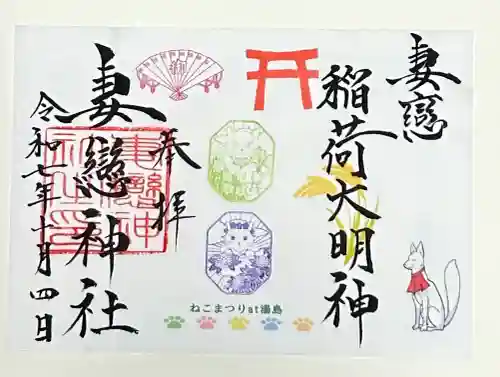 妻戀
稲荷大明神
奉拝
妻戀神社
令和七年十月四日
妻戀神社之印
ねこまつりat湯島